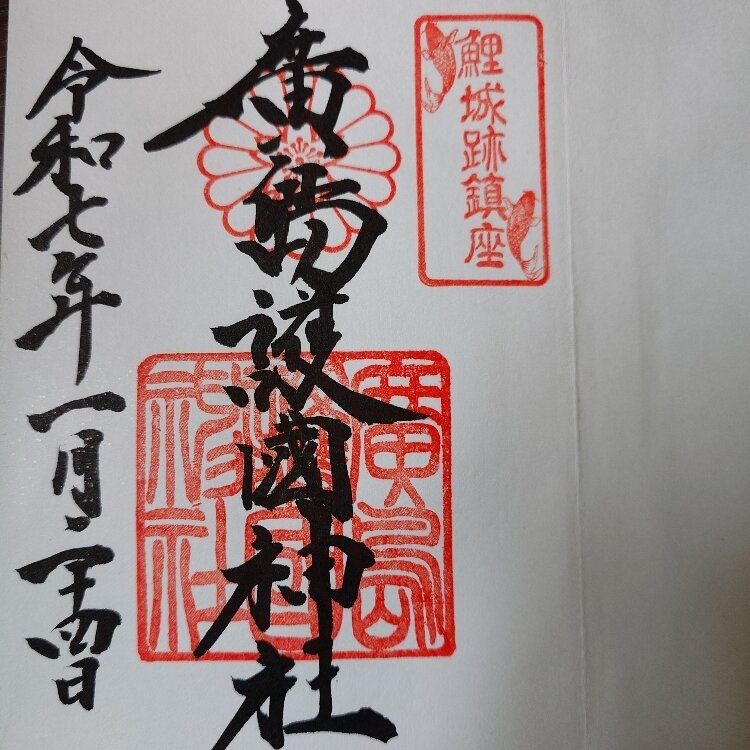 鯉城跡鎮座
廣島護國神社
廣島護國神社
令和七年一月二十四日